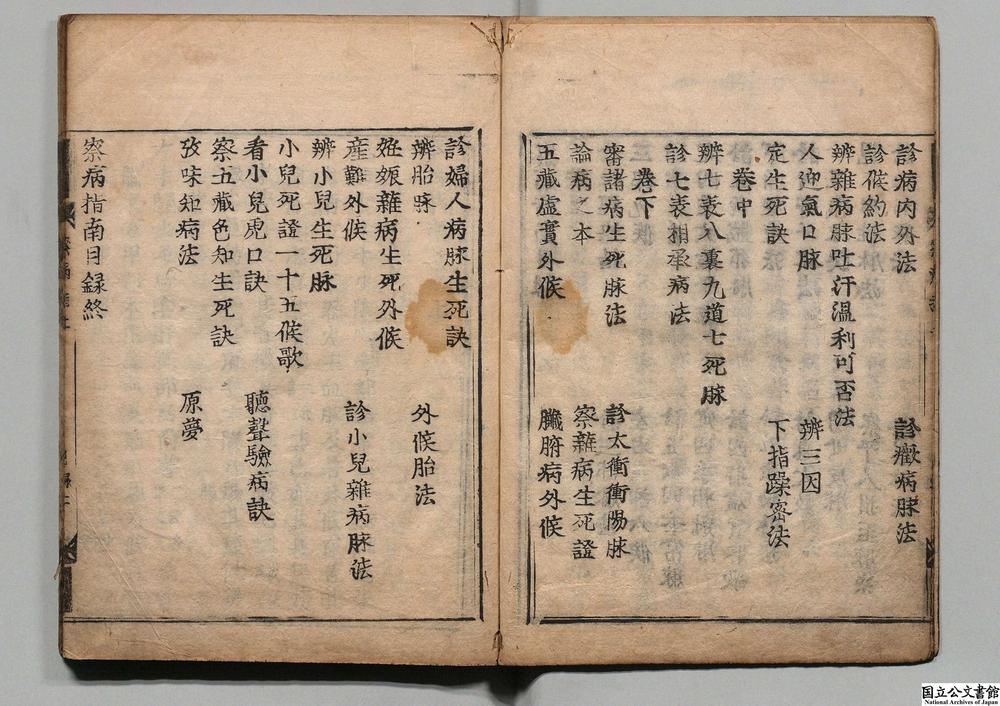 診病内外法　診癥病脉法
診候約法
辨雜病脉吐汗溫利可否法
人迎氣口脉　辨三因
定生死訣　下指躁密法
卷中
辨七表八裏九道七死脉
診七表相承病法
卷下
審諸病生死脉法　診太衝衝陽脉
論病之本　察雜病生死證
五藏虛實外候　臟腑病外候
診婦人病脉生死訣
辨胎脉　外候胎法
姙娠雜病生死外候
産難外候　診小兒雜病脉法
辨小兒生死脉
小兒死證一十五候歌
看小兒虎口訣　聽聲驗病訣
察五藏色知生死訣
攷味知病法　原夢
察病指南目録終
国立公文書館
National Archives of Japan